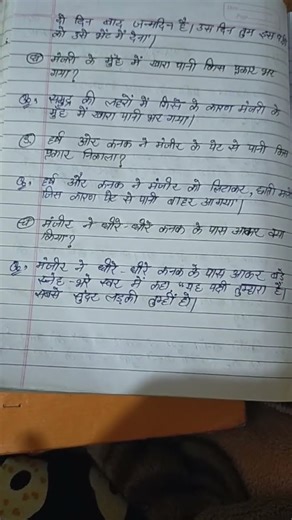 दो दिन बाद जन्मदिन है। उस दिन तुम इस
को उसे भेंट में देना।
मंजरी के मुंह में खारा पानी किस प्रकार भर
गया?
उ. समुद्र की लहरों में गिरने के कारण मंजरी के
मुंह में खारा पानी भर गया।
हर्ष और कनक ने मंजीर के पेट से पानी किस
प्रकार निकाला?
उ. हर्ष और कनक ने मंजीर को लिटाकर,
जिस कारण पेट से पानी बाहर आ गया।
मंजीर ने धीरे-धीरे कनक के पास आकर क्या
किया?
उ. मंजीर ने धीरे-धीरे कनक के पास आकर बड़े
स्नेह-भरे स्वर में कहा "यह तुम्हारा है।
सबसे सुंदर लड़की तुम्हीं हो।